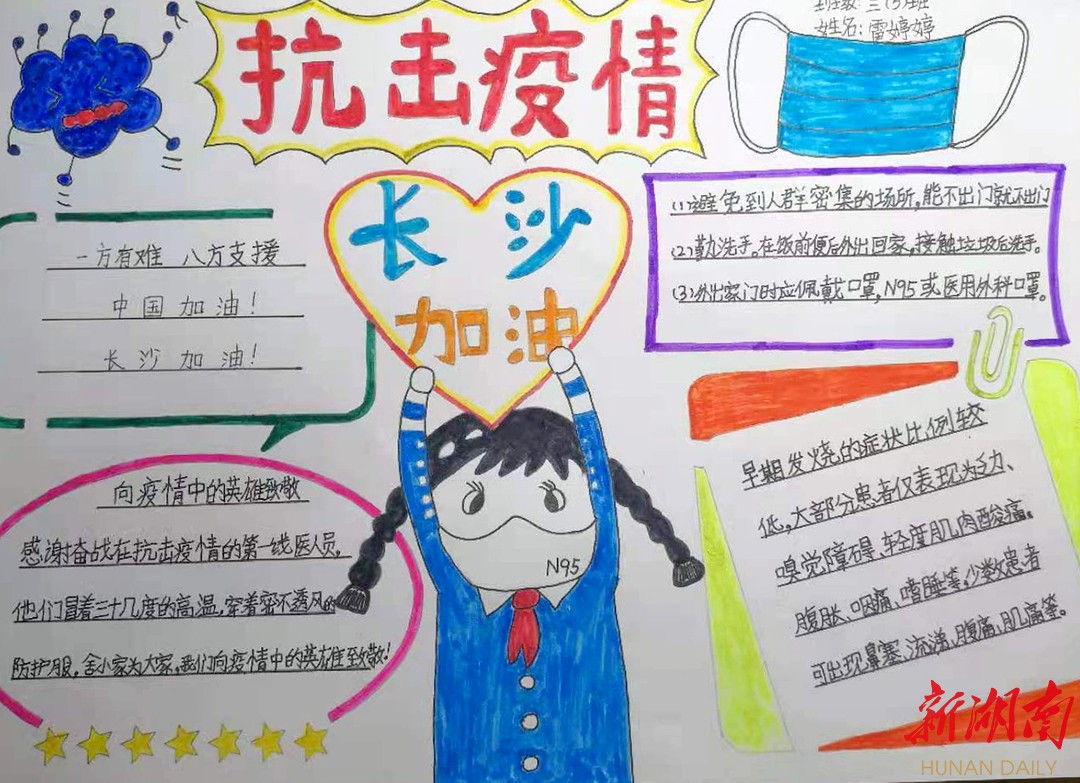 抗击疫情
班级:三(5)班
姓名:雷婷婷
长沙
加油
一方有难 八方支援
中国加油!
长沙加油!
(1)避免到人群密集的场所,能不出门就不出门
(2)勤洗手。在饭前便后外出回家,接触垃圾后洗手。
(3)外出家门时应佩戴口罩,N95或医用外科口罩。
向疫情中的英雄致敬
感谢奋战在抗击疫情的第一线医人员,
他们冒着三十几度的高温,穿着密不透风的
防护服,舍小家为大家,我们向疫情中的英雄至致敬!
N95
早期发烧的症状比例较
低,大部分患者仅表现为乏力、
嗅觉障碍、轻度肌肉酸痛。
腹胀、咽痛、嗜睡等,少数患者
可出现鼻塞、流涕、腹痛、肌痛等。
新湖南
HUNAN DAILY